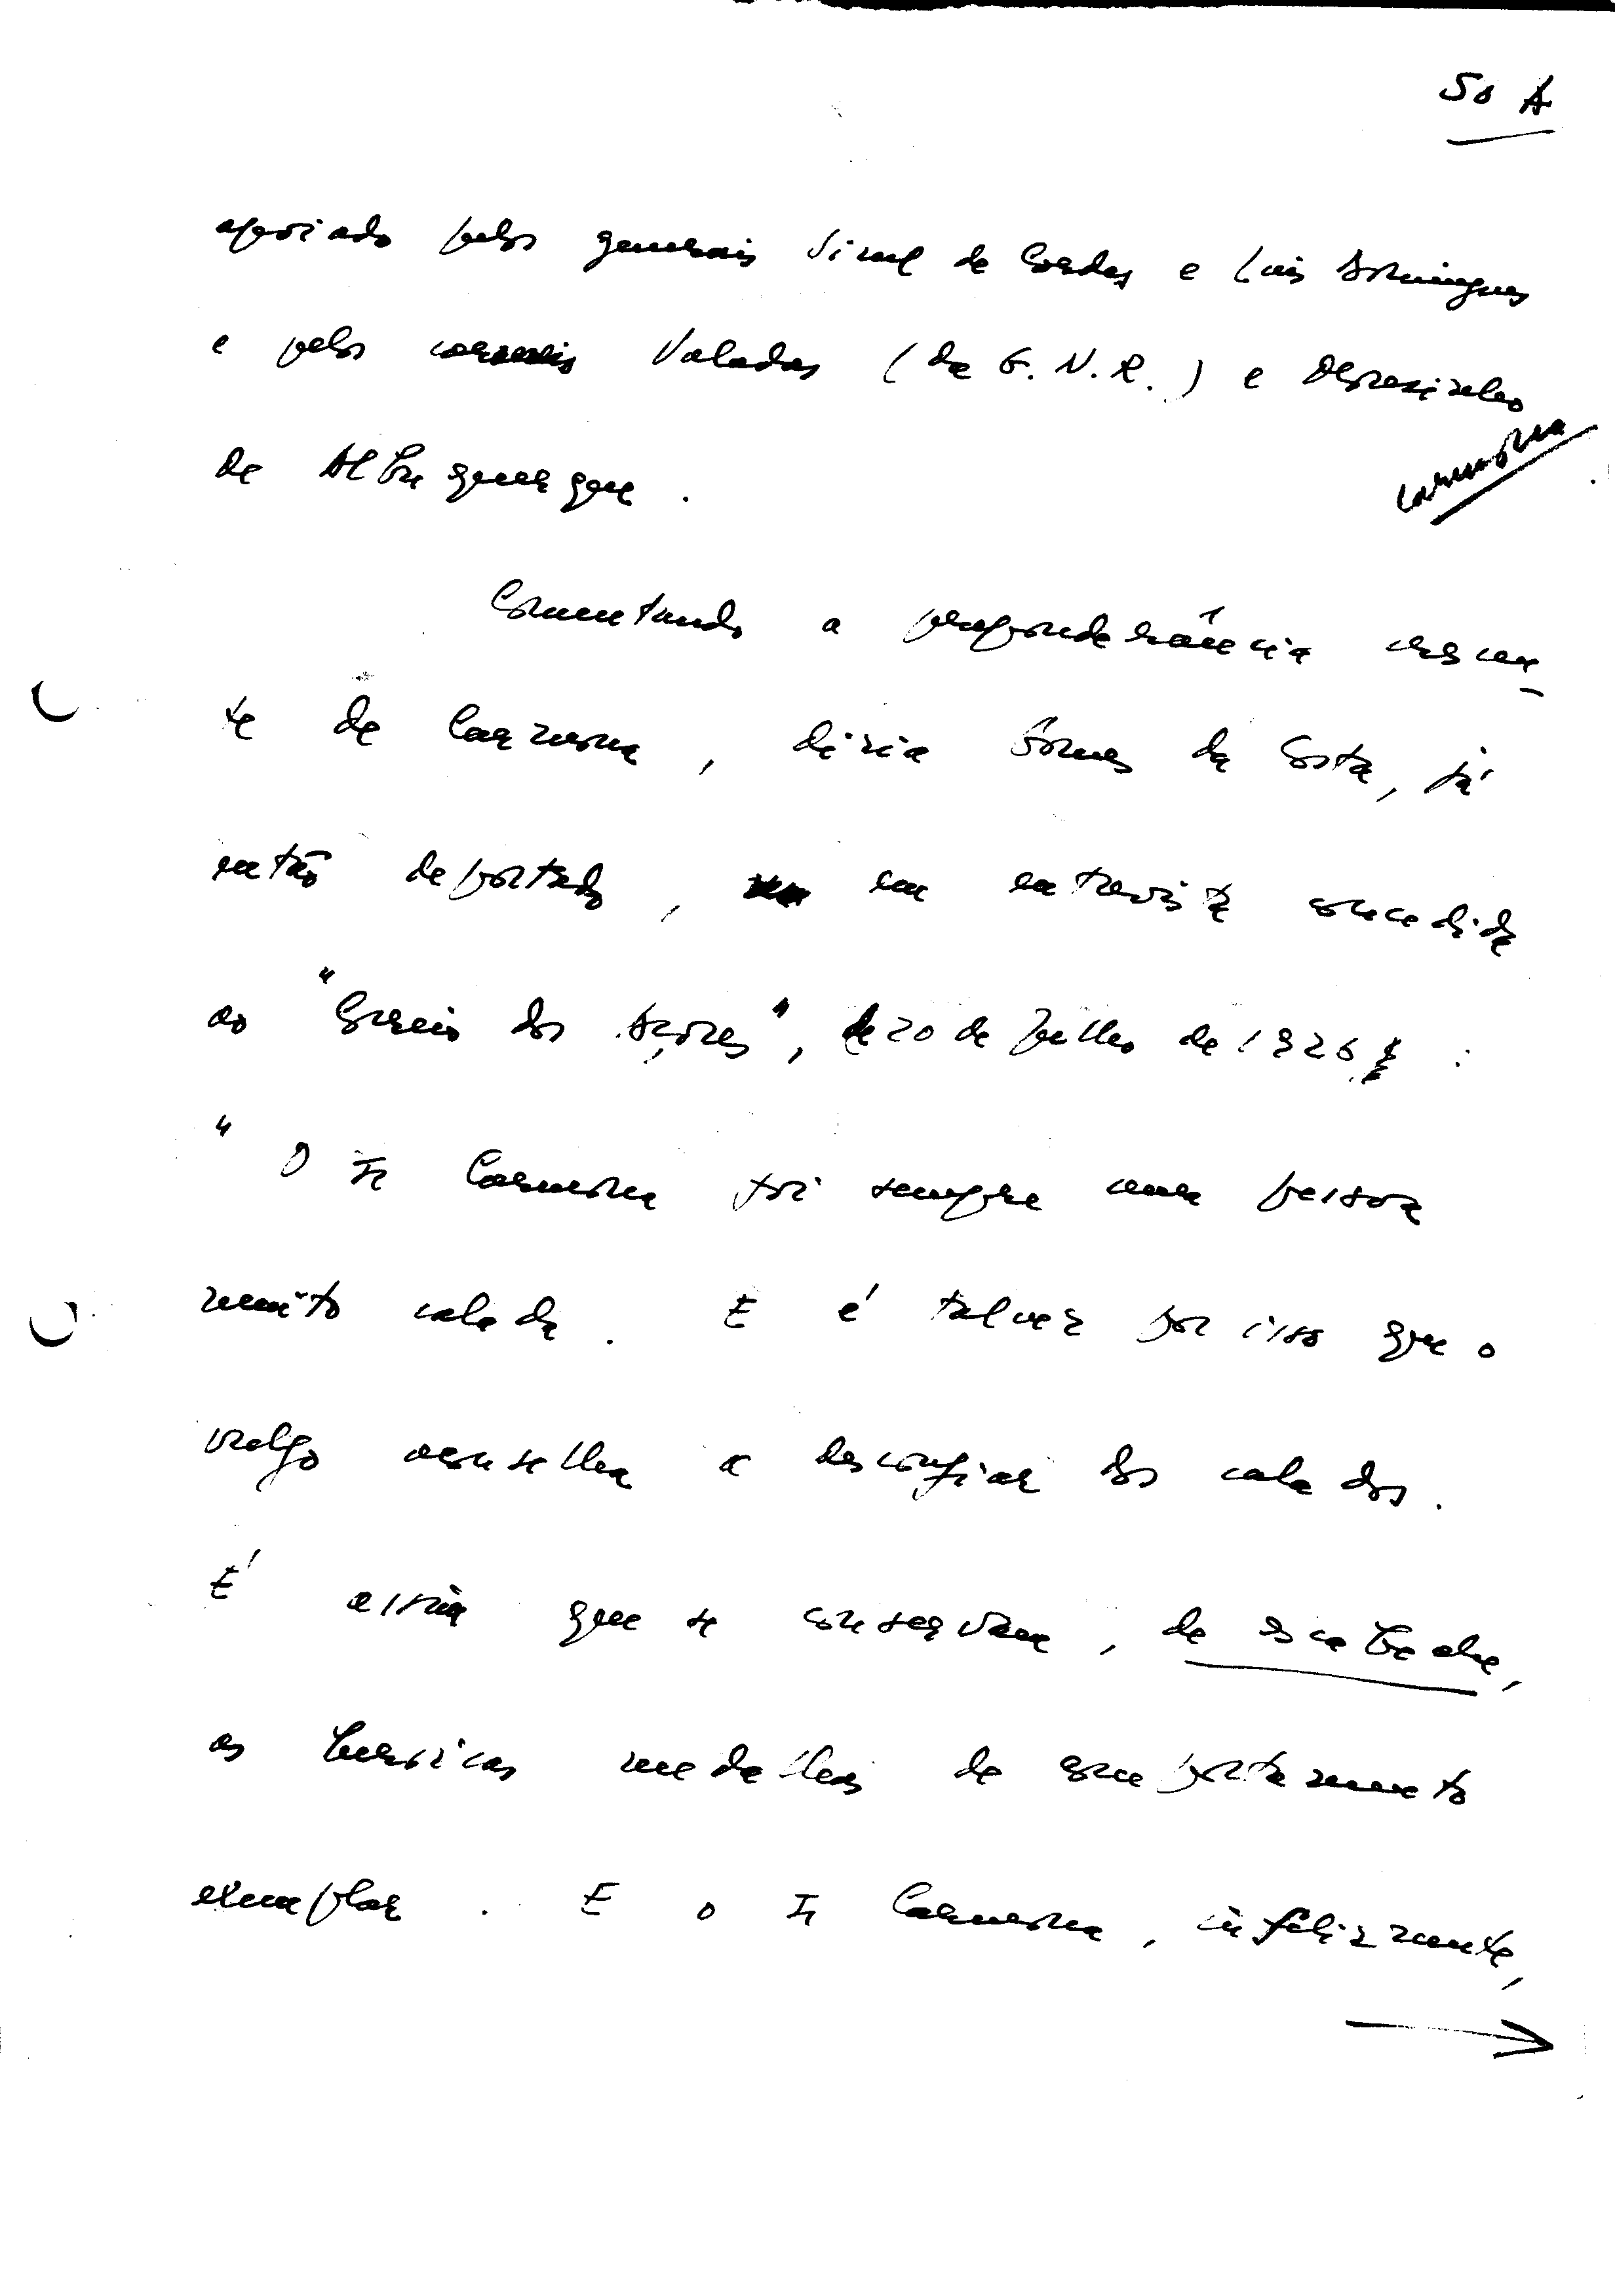 50 A
apoiado pelos generais Sinel de Cordes e Luís Domingues
e pelos coronéis Valadas (da G.N.R.) e Craveiro
de Albuquerque.
Carmona
Comentando a preponderância crescen-
te de Carmona, diria Gomes da Costa, já
então deportado, em entrevista concedida
ao "Correio dos Açores", de 20 de Julho de 1926 :
" O Sr Carmona foi sempre uma pessoa
muito calada. E é talvez por isso que o
vulgo aconselha a desconfiar dos calados.
É assim que se conservam, de escabeche,
as heróicas medalhas de comportamento
exemplar. E o Sr Carmona, infelizmente,